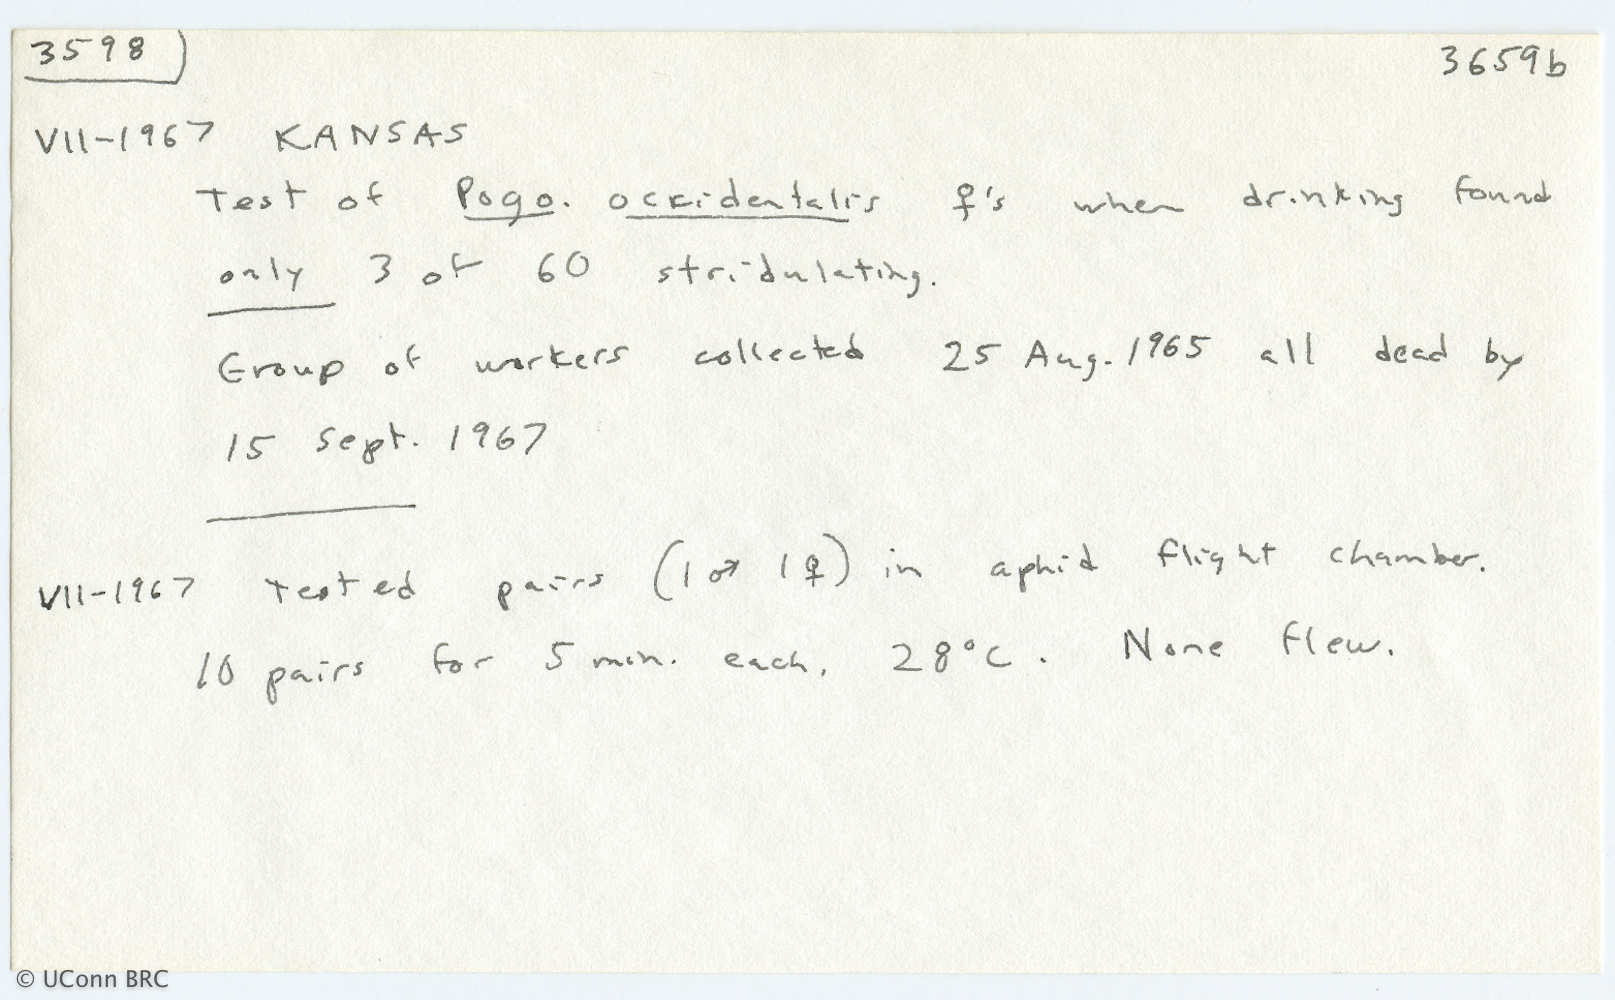 3598
3659b
VII-1967 KANSAS
Test of Pogo. occidentalis ♀'s when drinking found
only 3 of 60 stridulating.
Group of workers collected 25 Aug. 1965 all dead by
15 Sept. 1967
VII-1967 Tested pairs (1♂ 1♀) in aphid flight chamber.
10 pairs for 5 min. each, 28°C. None flew.
© UConn BRC